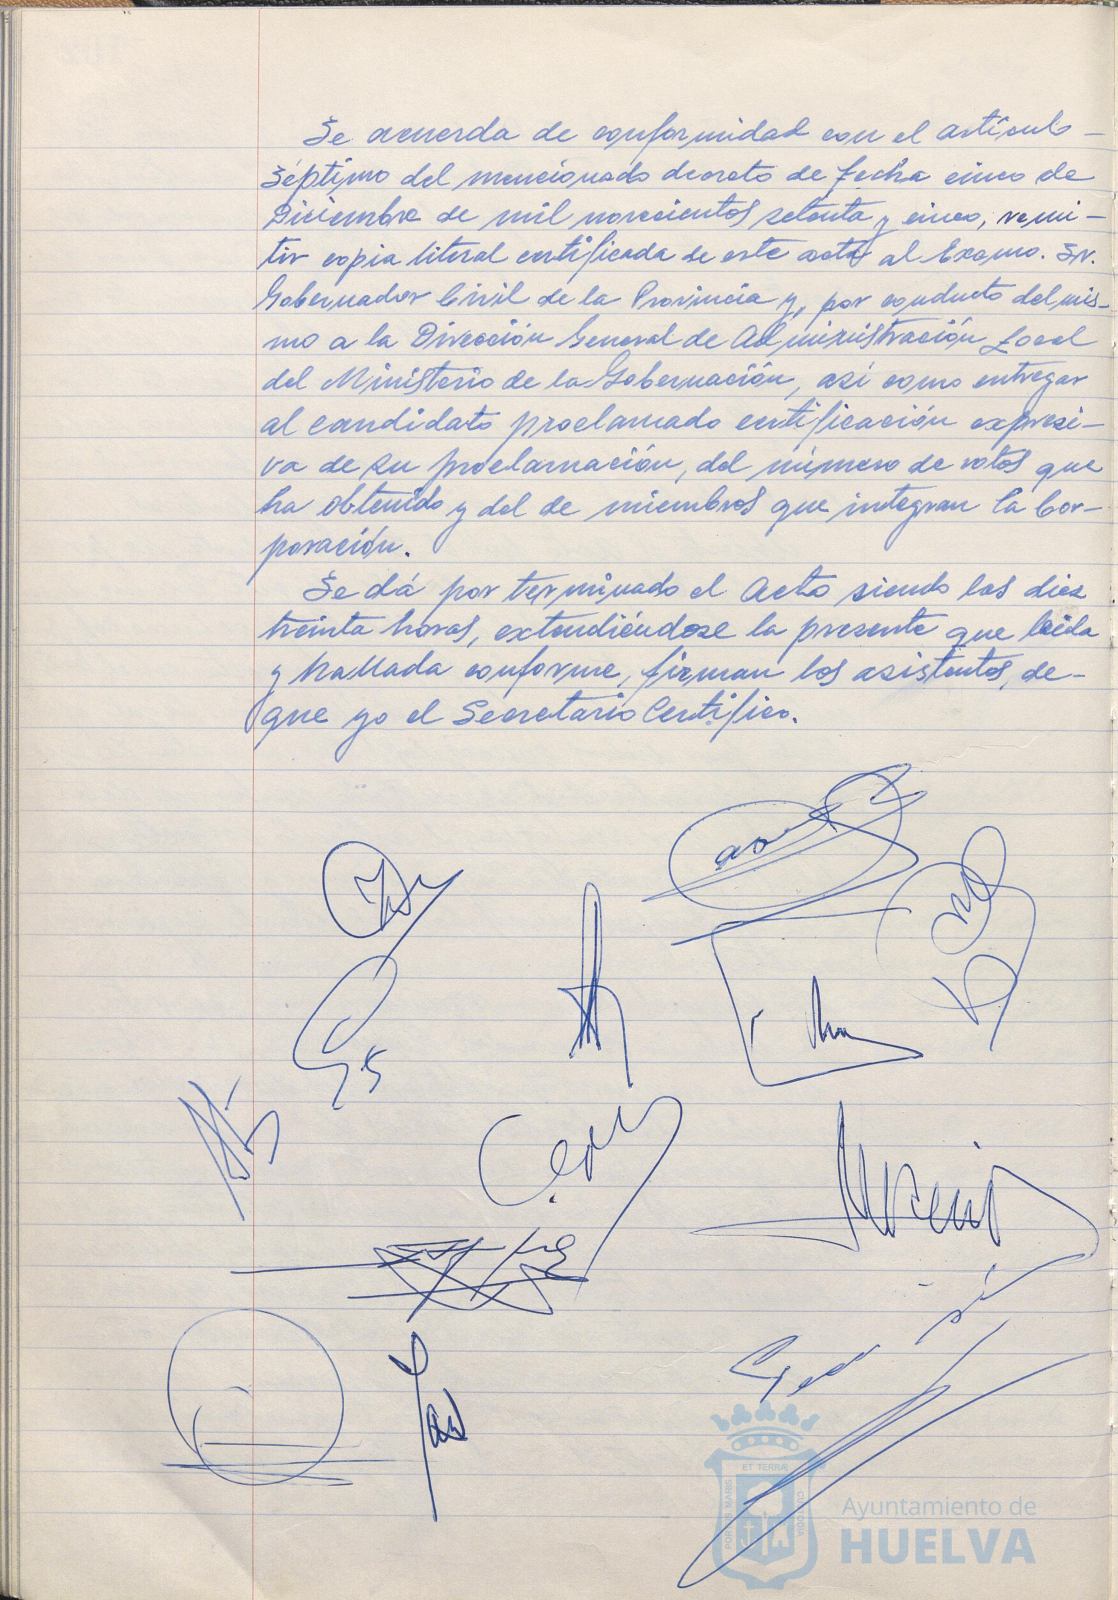 Se acuerda de conformidad con el artículo -
séptimo del mencionado decreto de fecha cinco de
Diciembre de mil novecientos setenta y cinco, remi-
tir copia literal certificada de este acta al Excmo. Sr.
Gobernador Civil de la Provincia y, por conducto del mis-
mo a la Dirección General de Administración Local
del Ministerio de la Gobernación, así como entregar
al candidato proclamado certificación expresi-
va de su proclamación, del número de votos que
ha obtenido y del de miembros que integran la Cor-
poración.
Se dá por terminado el Acto siendo las diez
treinta horas, extendiéndose la presente que leida
y hallada conforme, firman los asistentes, de-
que yo el Secretario Certifico.
ET TERRAE
PORTUS MARIS
CUSTODIA
Ayuntamiento de
HUELVA